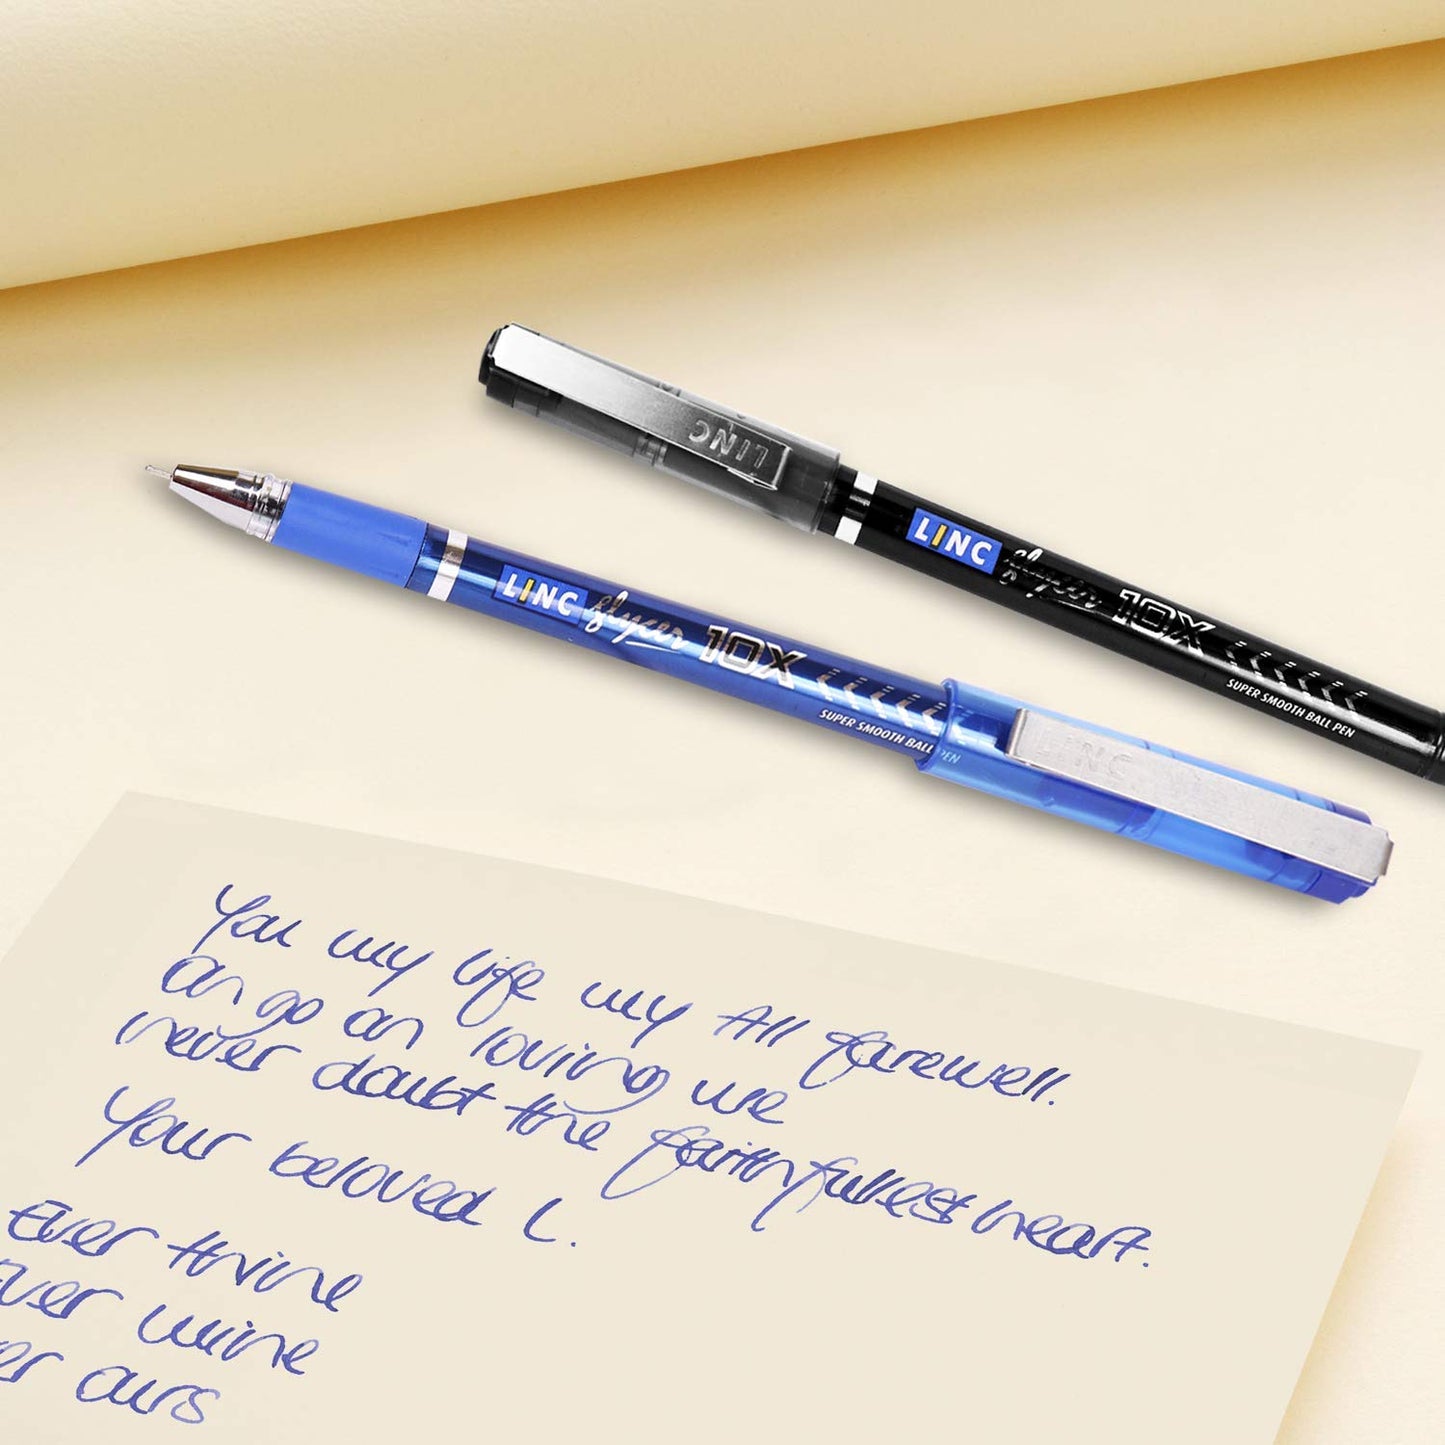 LINC
LINC glycer 10X
SUPER SMOOTH BALL PEN
LINC glycer 10X
SUPER SMOOTH BALL PEN
LINC
You my life my All farewell.
on go on loving me
never doubt the faithfullest heart.
Your beloved L.
Ever thine
Ever mine
ours